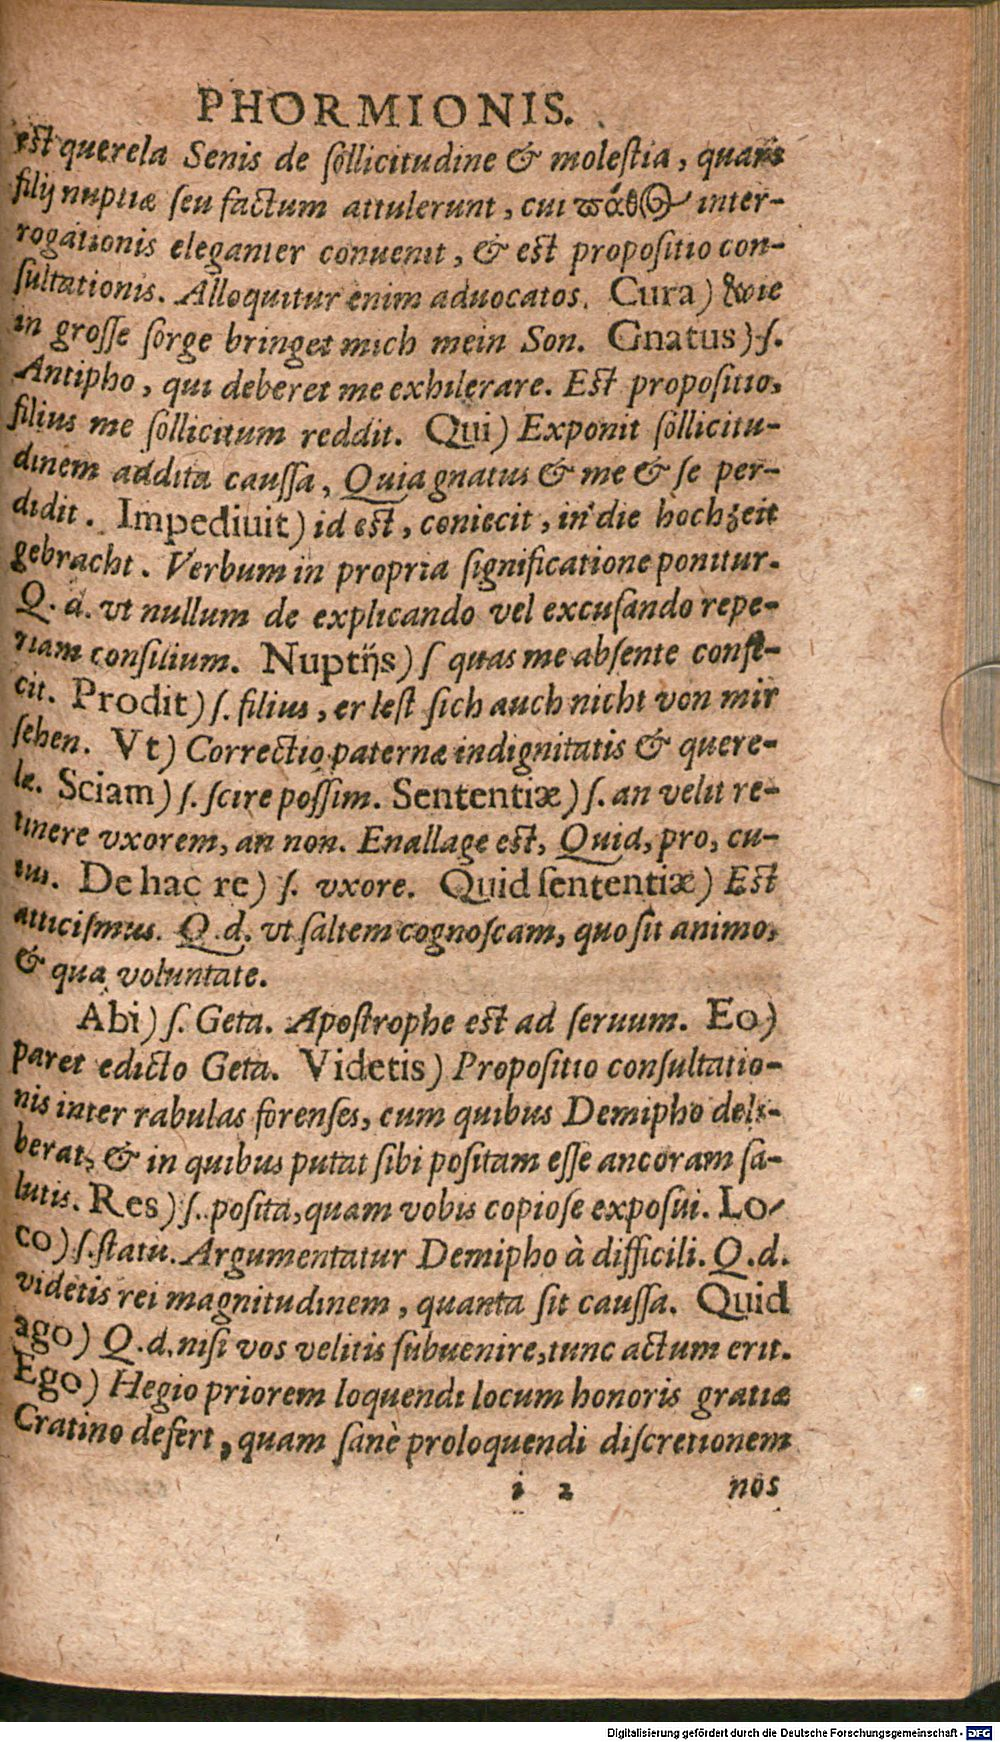 PHORMIONIS.
est querela Senis de sollicitudine & molestia, quam
filij nuptiæ seu factum attulerunt, cui πάθ⊙ inter-
rogationis eleganter conuenit, & est propositio con-
sultationis. Alloquitur enim aduocatos. Cura) wie
in grosse sorge bringet mich mein Son. Gnatus) s.
Antipho, qui deberet me exhilerare. Est propositio,
filius me sollicitum reddit. Qui) Exponit sollicitu-
dinem addita caussa, Quia gnatus & me & se per-
didit. Impediuit) id est, coniecit, in die hochzeit
gebracht. Verbum in propria significatione ponitur.
Q. d. vt nullum de explicando vel excusando repe-
riam consilium. Nuptijs) s quas me absente confe-
cit. Prodit) s. filius, er lest sich auch nicht von mir
sehen. Vt) Correctio paternæ indignitatis & quere-
læ. Sciam) s. scire possim. Sententiæ) s. an velit re-
tinere vxorem, an non. Enallage est, Quid, pro, cu-
ius. De hac re) s. vxore. Quid sententiæ) Est
atticismus. Q. d. vt saltem cognoscam, quo sit animo,
& qua voluntate.
Abi) s. Geta. Apostrophe est ad seruum. Eo)
paret edicto Geta. Videtis) Propositio consultatio-
nis inter rabulas forenses, cum quibus Demipho deli-
berat, & in quibus putat sibi positam esse ancoram sa-
lutis. Res) s. posita, quam vobis copiose exposui. Lo-
co) s. statu. Argumentatur Demipho à difficili. Q. d.
videtis rei magnitudinem, quanta sit caussa. Quid
ago) Q. d. nisi vos velitis subuenire, tunc actum erit.
Ego) Hegio priorem loquendi locum honoris gratiæ
Cratino defert, quam sanè proloquendi discretionem
i 2 nos
Digitalisierung gefördert durch die Deutsche Forschungsgemeinschaft - DFG